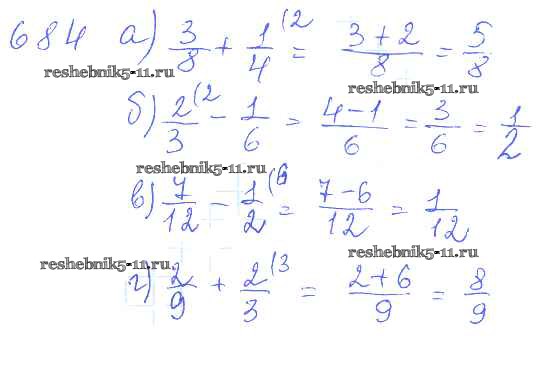 684 а) 3/8 + 1/4 (2 = (3+2)/8 = 5/8
reshebnik5-11.ru reshebnik5-11.ru
б) 2/3 (2 - 1/6 = (4-1)/6 = 3/6 = 1/2
reshebnik5-11.ru
в) 7/12 - 1/2 (6 = (7-6)/12 = 1/12
reshebnik5-11.ru reshebnik5-11.ru
г) 2/9 + 2/3 (3 = (2+6)/9 = 8/9